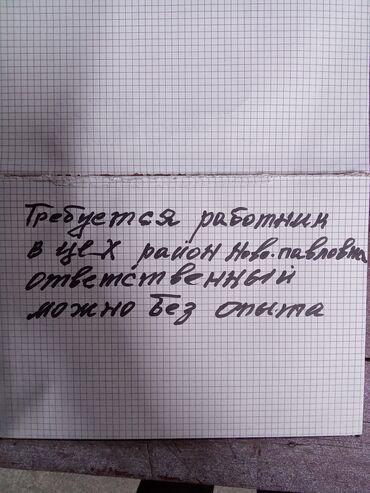 Требуется работник
в цех район Ново-павловка
ответственный
можно без опыта